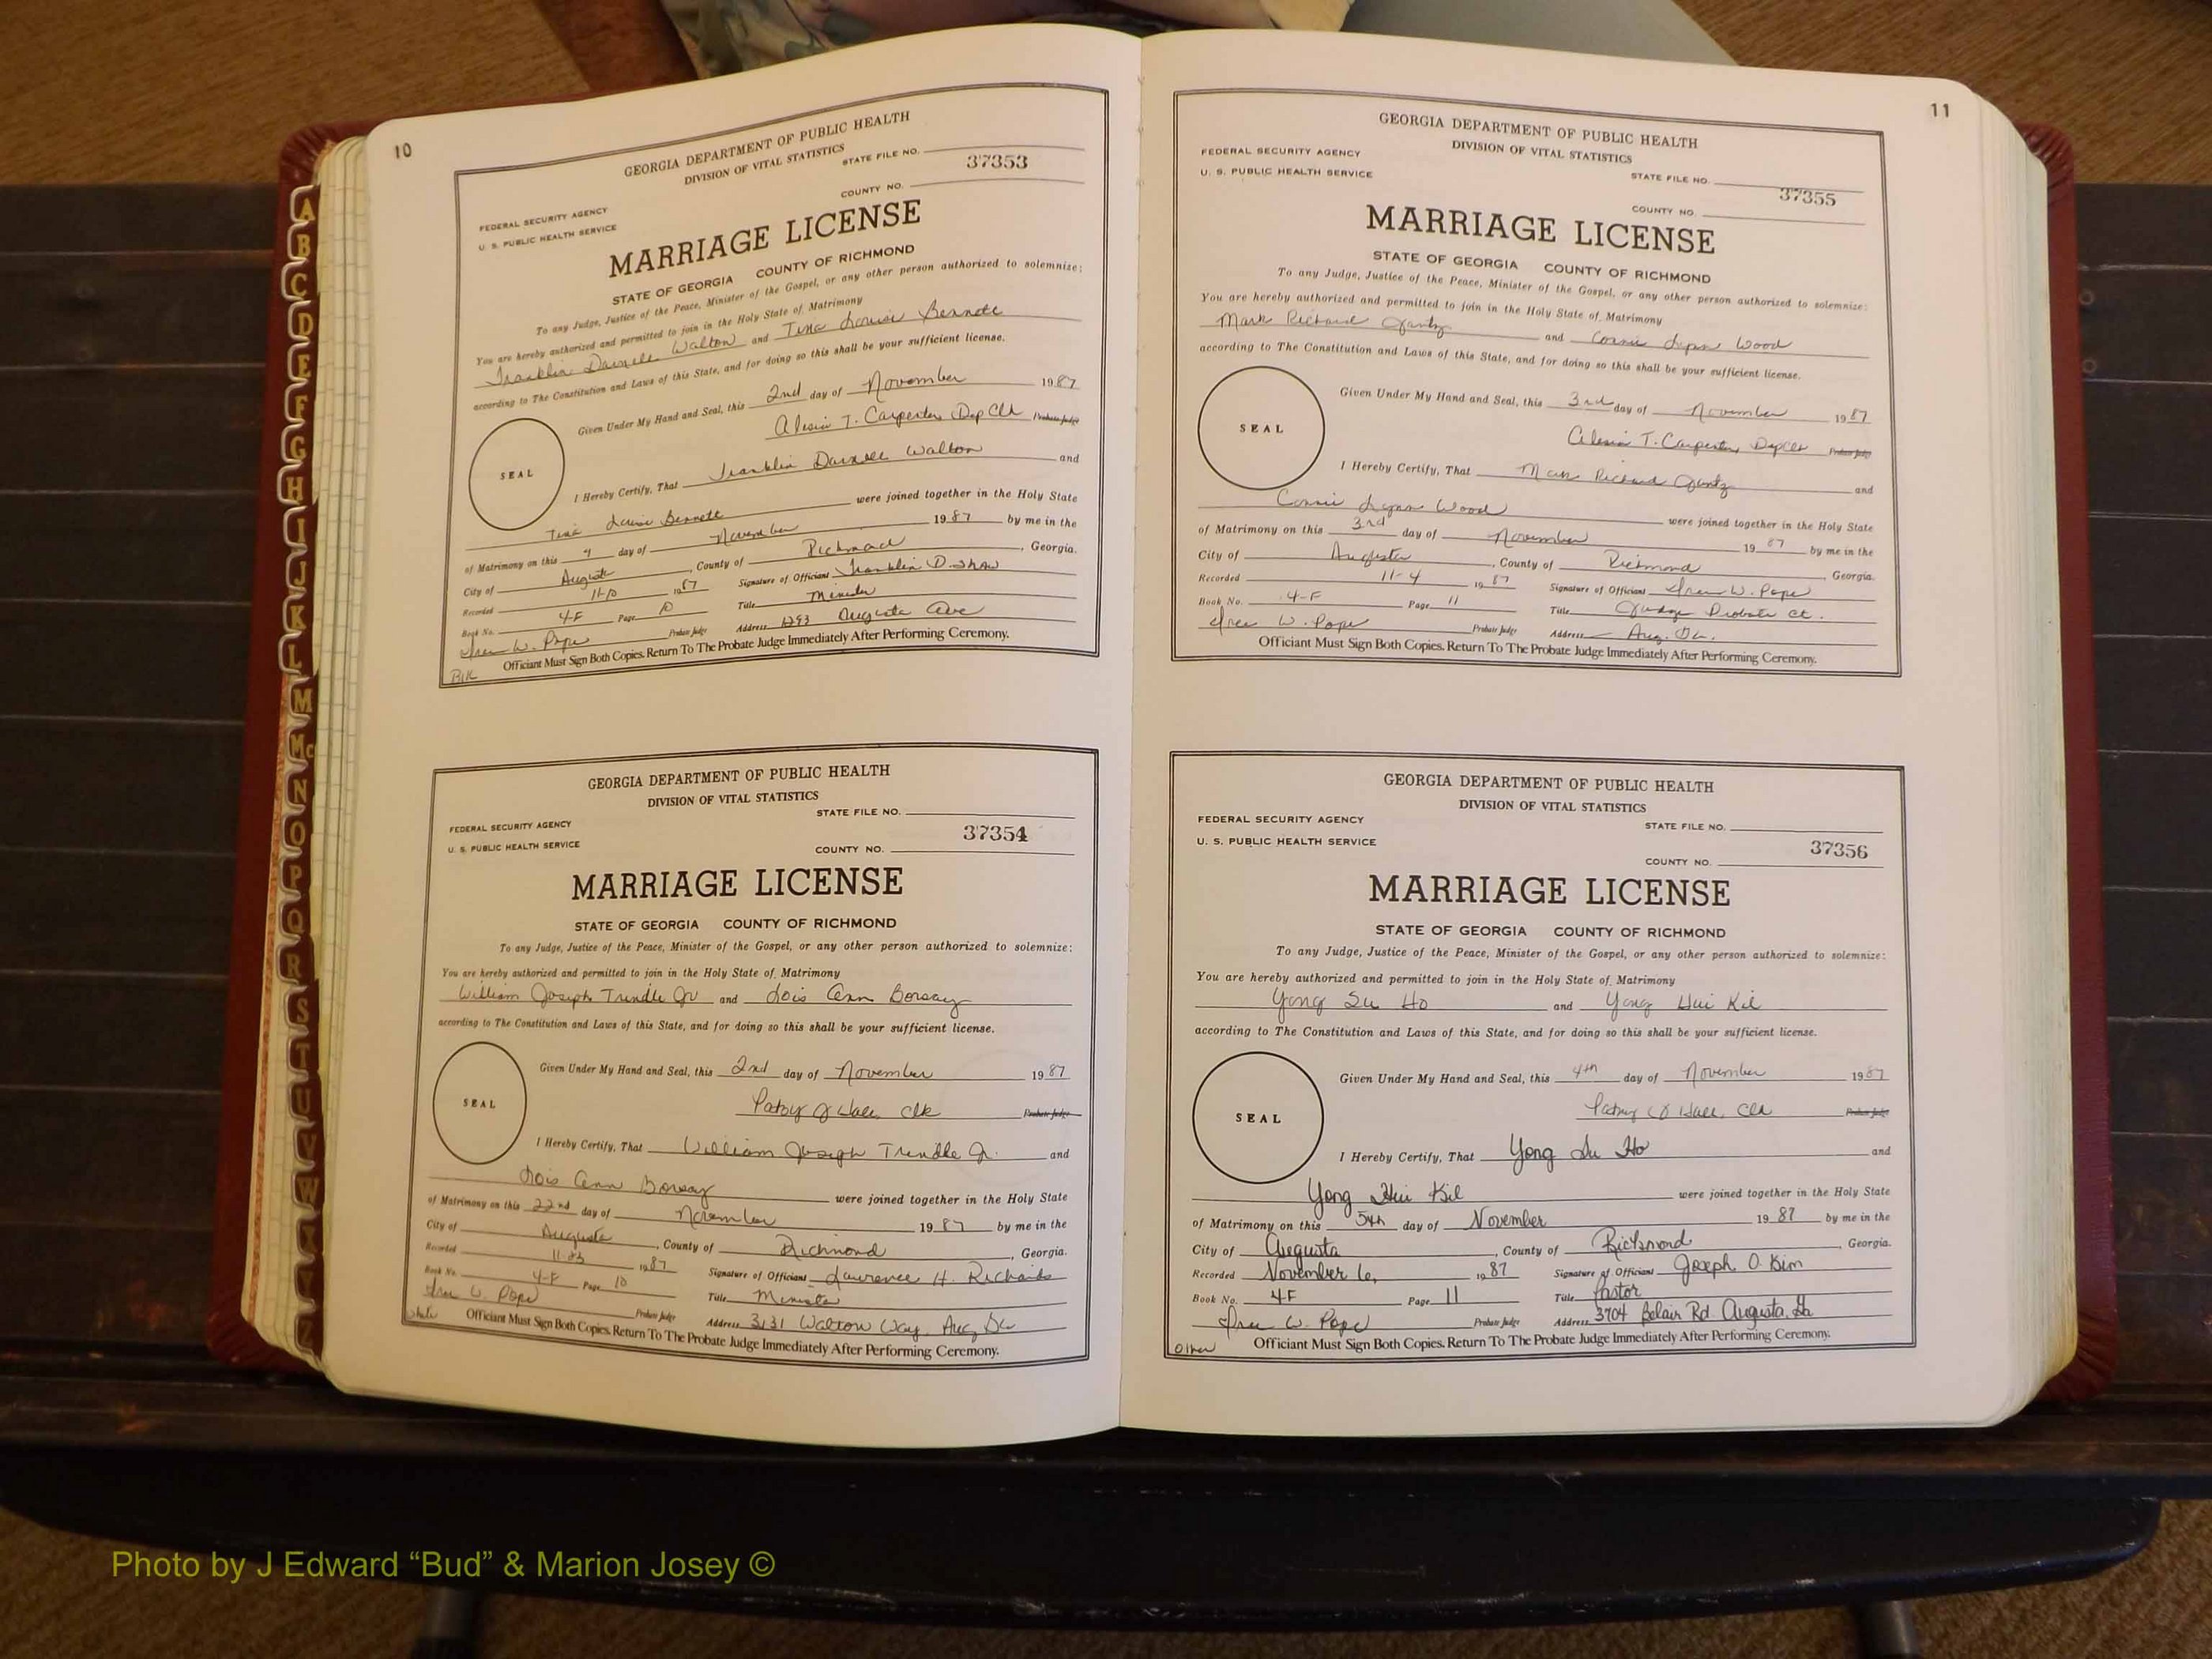 10
GEORGIA DEPARTMENT OF PUBLIC HEALTH
DIVISION OF VITAL STATISTICS
STATE FILE NO.
37353
FEDERAL SECURITY AGENCY
U. S. PUBLIC HEALTH SERVICE
COUNTY NO.
MARRIAGE LICENSE
STATE OF GEORGIA COUNTY OF RICHMOND
To any Judge, Justice of the Peace, Minister of the Gospel, or any other person authorized to solemnize:
You are hereby authorized and permitted to join in the Holy State of Matrimony
Franklin Darnell Walton and Tina Louise Bennett
according to The Constitution and Laws of this State, and for doing so this shall be your sufficient license.
Given Under My Hand and Seal, this 2nd day of November 1987
Alesia T. Carpenter Dep Clk Probate Judge
SEAL
I Hereby Certify, That Franklin Darnell Walton and
Tina Louise Bennett were joined together in the Holy State
of Matrimony on this day of November 1987 by me in the
City of Augusta, County of Richmond, Georgia.
Recorded 11-10 1987 Signature of Officiant Franklin D. Shaw
Book No. 4-F Page 10 Title Minister
W. Pope Probate Judge Address 1293 Augusta Ave
Officiant Must Sign Both Copies. Return To The Probate Judge Immediately After Performing Ceremony.
Blk
GEORGIA DEPARTMENT OF PUBLIC HEALTH
DIVISION OF VITAL STATISTICS
STATE FILE NO.
FEDERAL SECURITY AGENCY
37354
U. S. PUBLIC HEALTH SERVICE
COUNTY NO.
MARRIAGE LICENSE
STATE OF GEORGIA COUNTY OF RICHMOND
To any Judge, Justice of the Peace, Minister of the Gospel, or any other person authorized to solemnize:
You are hereby authorized and permitted to join in the Holy State of Matrimony
William Joseph Trindle Jr and Lois Ann Borsay
according to The Constitution and Laws of this State, and for doing so this shall be your sufficient license.
Given Under My Hand and Seal, this 2nd day of November 1987
Patsy J Hall, Clk Probate Judge
SEAL
I Hereby Certify, That William Joseph Trindle Jr. and
Lois Ann Borsay were joined together in the Holy State
of Matrimony on this 22nd day of November 1987 by me in the
City of Augusta, County of Richmond, Georgia.
Recorded 11-23 1987 Signature of Officiant Lawrence H. Richards
Book No. 4-F Page 10 Title Minister
W. Pope Probate Judge Address 3131 Walton Way, Aug, Ga
White Officiant Must Sign Both Copies. Return To The Probate Judge Immediately After Performing Ceremony.
11
GEORGIA DEPARTMENT OF PUBLIC HEALTH
DIVISION OF VITAL STATISTICS
FEDERAL SECURITY AGENCY
U. S. PUBLIC HEALTH SERVICE
STATE FILE NO.
37355
COUNTY NO.
MARRIAGE LICENSE
STATE OF GEORGIA COUNTY OF RICHMOND
To any Judge, Justice of the Peace, Minister of the Gospel, or any other person authorized to solemnize:
You are hereby authorized and permitted to join in the Holy State of Matrimony
Mark Richard Jantz and Connie Lynn Wood
according to The Constitution and Laws of this State, and for doing so this shall be your sufficient license.
Given Under My Hand and Seal, this 3rd day of November 1987
Alesia T. Carpenter, Dep Clk Probate Judge
SEAL
I Hereby Certify, That Mark Richard Jantz and
Connie Lynn Wood were joined together in the Holy State
of Matrimony on this 3rd day of November 1987 by me in the
City of Augusta, County of Richmond, Georgia.
Recorded 11-4 1987 Signature of Officiant W. Pope
Book No. 4-F Page 11 Title Judge Probate Ct.
W. Pope Probate Judge Address Aug. Ga.
Officiant Must Sign Both Copies. Return To The Probate Judge Immediately After Performing Ceremony.
GEORGIA DEPARTMENT OF PUBLIC HEALTH
DIVISION OF VITAL STATISTICS
FEDERAL SECURITY AGENCY
STATE FILE NO.
U. S. PUBLIC HEALTH SERVICE
37356
COUNTY NO.
MARRIAGE LICENSE
STATE OF GEORGIA COUNTY OF RICHMOND
To any Judge, Justice of the Peace, Minister of the Gospel, or any other person authorized to solemnize:
You are hereby authorized and permitted to join in the Holy State of Matrimony
Yong Su Ho and Yong Hui Kil
according to The Constitution and Laws of this State, and for doing so this shall be your sufficient license.
Given Under My Hand and Seal, this 4th day of November 1987
Patsy J Hall, Clk Probate Judge
SEAL
I Hereby Certify, That Yong Su Ho and
Yong Hui Kil were joined together in the Holy State
of Matrimony on this 5th day of November 1987 by me in the
City of Augusta, County of Richmond, Georgia.
Recorded November 6, 1987 Signature of Officiant Joseph O. Kim
Book No. 4F Page 11 Title Pastor
W. Pope Probate Judge Address 3704 Belair Rd. Augusta, Ga
Other Officiant Must Sign Both Copies. Return To The Probate Judge Immediately After Performing Ceremony.
A
B
C
D
E
F
G
H
I
J
K
L
M
Mc
N
O
P
Q
R
S
T
U
V
W
X
Y
Z
Photo by J Edward “Bud” & Marion Josey ©